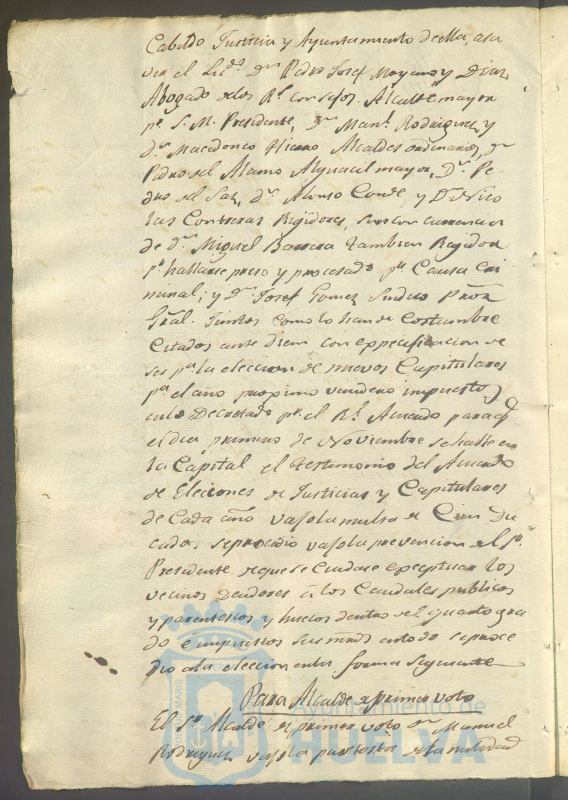 Cabildo Justicia y Ayuntamiento de ella, asa
ver el Licdo. Dn. Pedro Josef Moyano y Diaz,
Abogado delos Rs. Consejos, Alcalde mayor
pr. S. M. Presidente, Dn. Manl. Rodriguez, y
Dn. Macedonio Alcaldes ordinarios, Dn.
Pedro del Alamo Alguacil mayor, Dn. Pe
dro del Saz, Dn. Alonso Conde, y Dn. Nico
las Contreras Regidores, sin concurrencia
de Dn. Miguel Barrera tambien Regidor
pr. hallarse preso y procesado pr. Causa Cri
minal; y Dn. Josef Gomez Sindico Pror.
Gral. Juntos como lo han de costumbre
Citados ante diem con expecificacion de
ser pa. la eleccion de nuevos Capitulares
pa. el año proximo venidero impuestos
delo Decretado pr. el Rl. Acuerdo para q
el dia primero de Noviembre se halle en
la Capital el testimonio del Acuerdo
de Elecciones de Justicias y Capitulares
de Cada año vajo la multa de Cien Du
cados, se procedio vajo la prevencion del Sr.
Presidente de que se Cuidase exceptuar los
vecinos deudores à los Caudales publicos
y parentescos y huecos dentro del quarto gra
do è impuestos sus mrds. en todo se proce
dio ala eleccion enla forma siguiente
Para Alcalde de primer voto
El Sr. Alcalde de primer voto Dn. Manuel
Rodriguez vajo la protesta de la nulidad
Ayuntamiento de
HUELVA